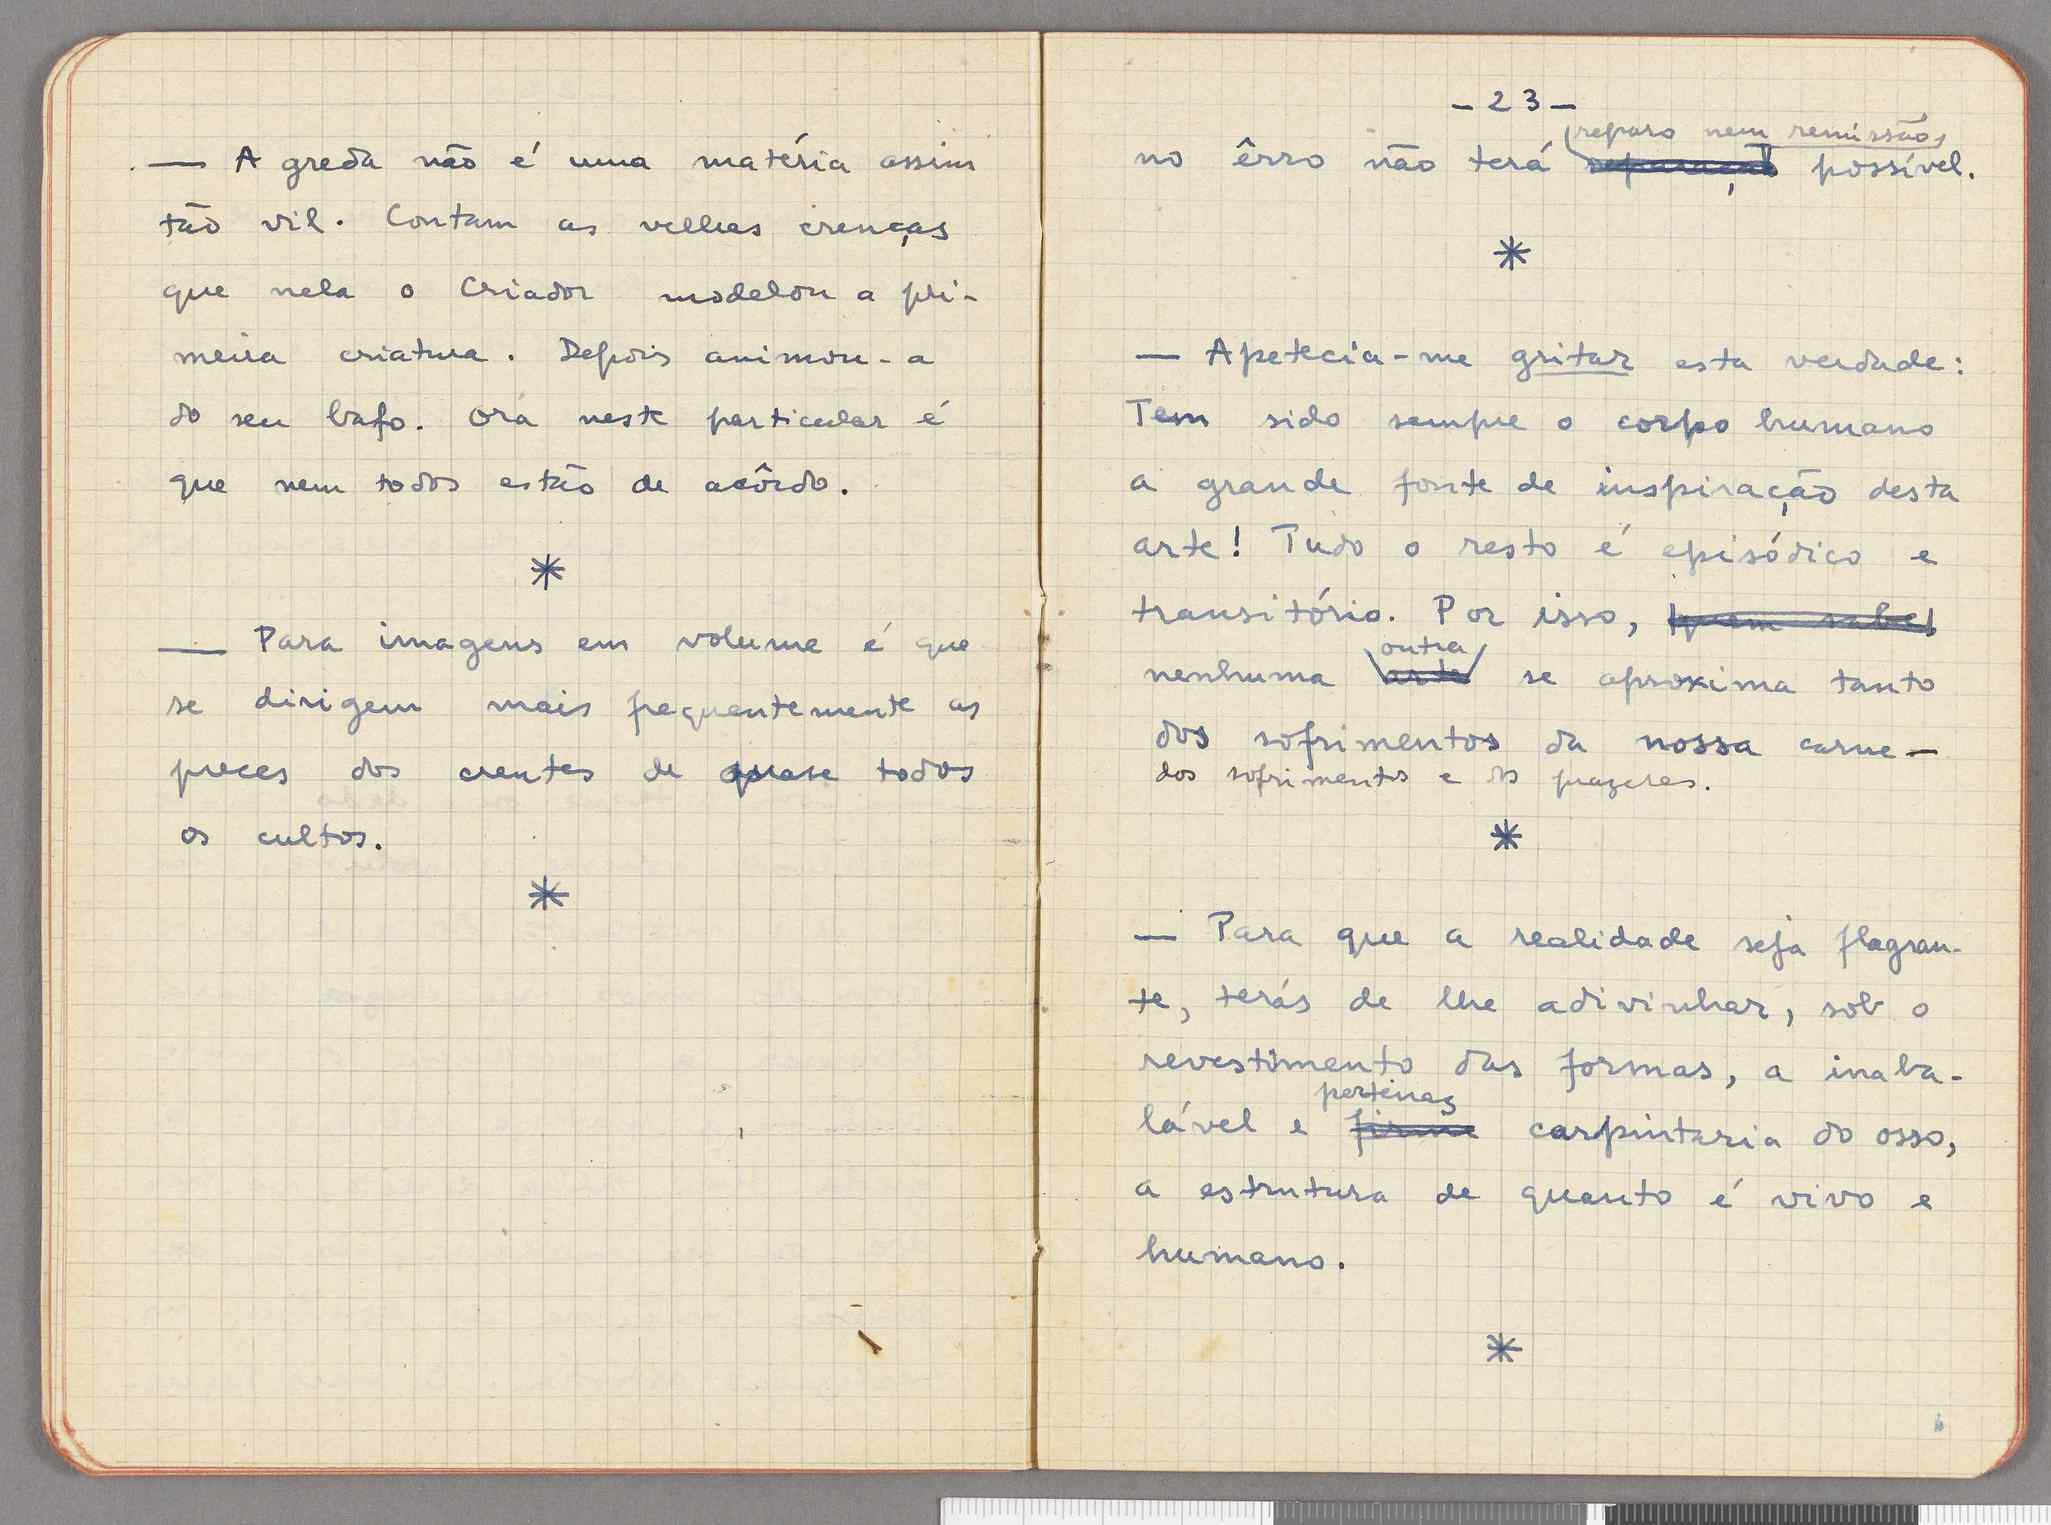 — A greda não é uma matéria assim
tão vil. Contam as velhas crenças
que nela o Criador modelou a pri-
meira criatura. Depois animou-a
do seu bafo. Ora neste particular é
que nem todos estão de acôrdo.
*
— Para imagens em volume é que
se dirigem mais frequentemente as
preces dos crentes de quase todos
os cultos.
*
- 23 -
reparo nem remissão,
no êrro não terá reparação possível.
*
— Apetecia-me gritar esta verdade:
Tem sido sempre o corpo humano
a grande fonte de inspiração desta
arte! Tudo o resto é episódico e
transitório. Por isso, quem sabe!
outra
nenhuma arte se aproxima tanto
dos sofrimentos da nossa carne —
dos sofrimentos e os prazeres.
*
— Para que a realidade seja flagran-
te, terás de lhe adivinhar, sob o
revestimento das formas, a inaba-
pertinaz
lável e firme carpintaria do osso,
a estrutura de quanto é vivo e
humano.
*